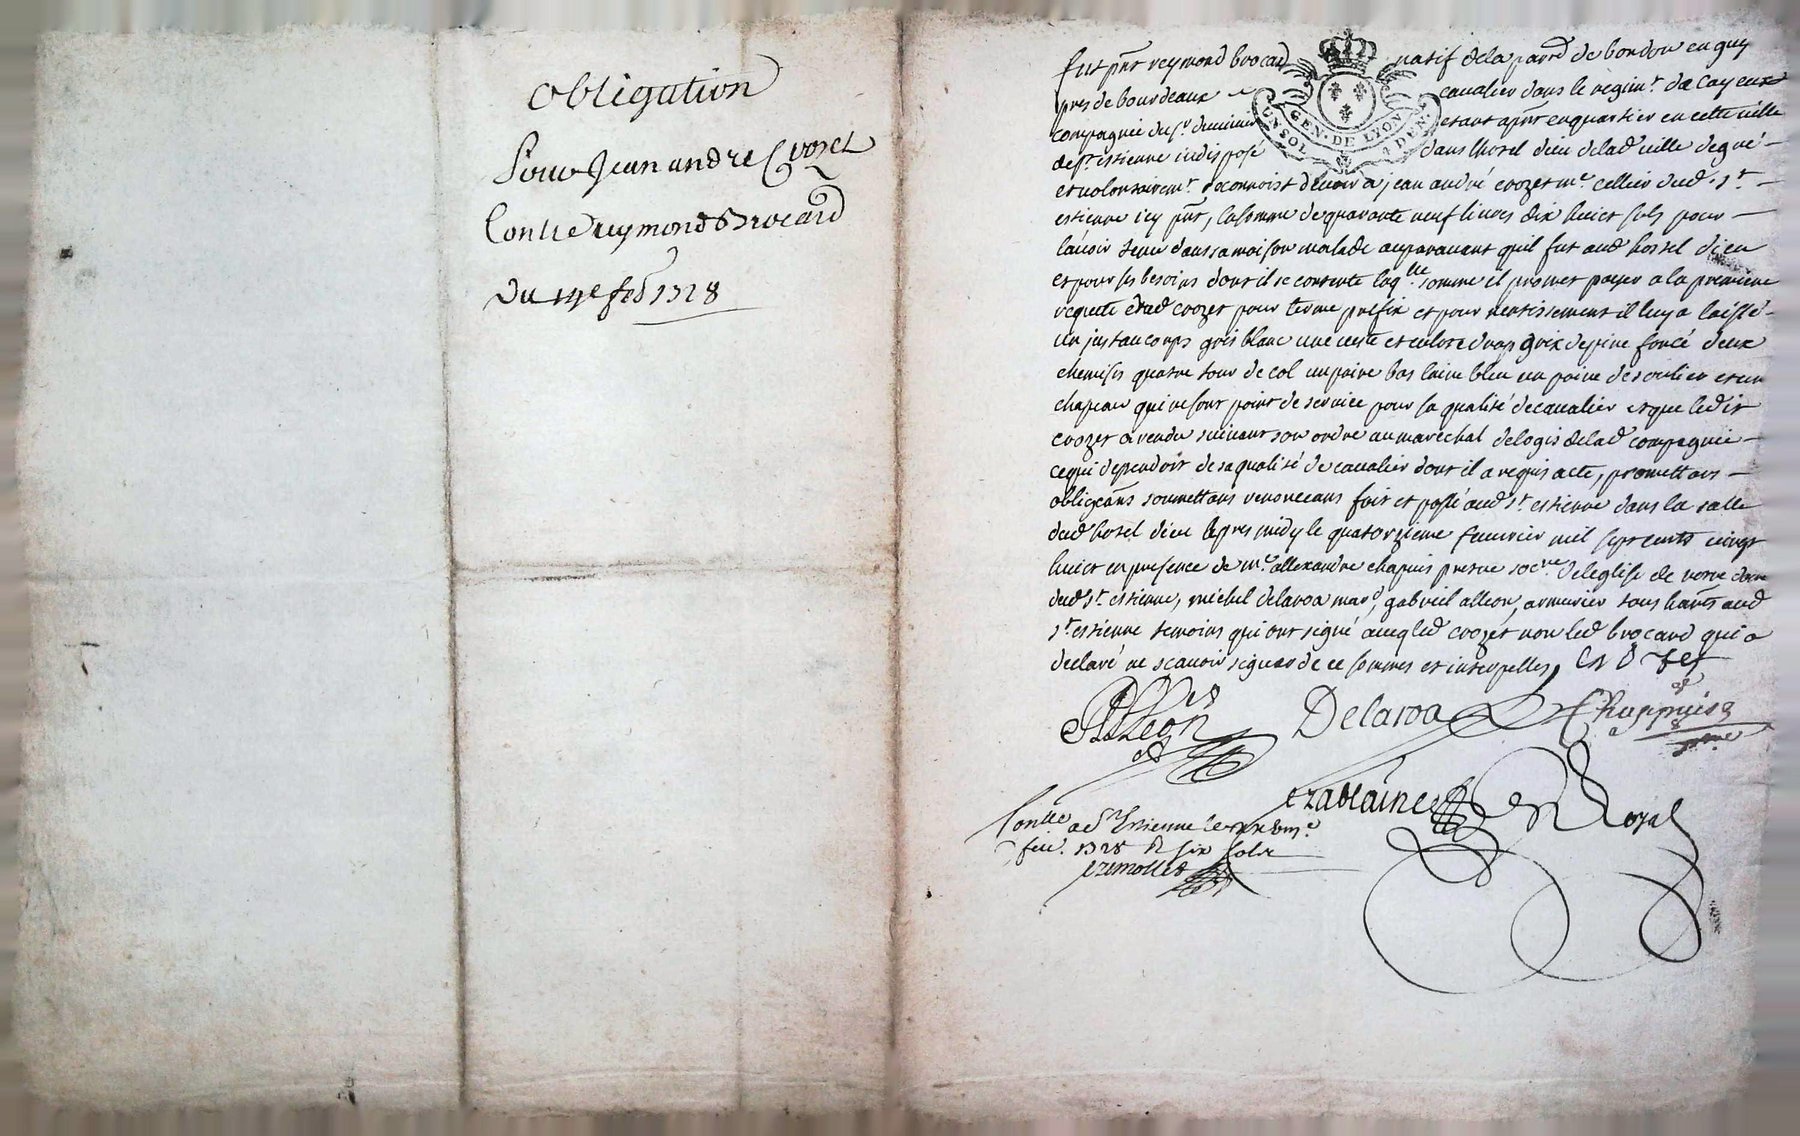 Obligation
Pour Jean andre Crozet
Contre reymond Brocard
Du 14e feb 1728
fut pnt reymond brocard natif de la parr de bondon en guy
pres de bourdeaux cavalier dans le regimt de Cayeux
compagnie du sr etant apnt en quartier en cette ville
de st estienne indisposé dans lhotel dieu de lad ville de gré
et volontairemt reconnoist devoir a jean andré crozet me cellier dud st
estienne icy pnt, la somme de quarante neuf livres dix huict sols pour
lavoir tenu dans sa maison malade auparavant quil fut aud hostel dieu
et pour ses besoins dont il se contente laqlle somme il promet payer a la premiere
requete dud crozet pour terme prefix et pour nentissement il luy a laissé
un justaucorps gris blanc une veste et culote drap gris depine foncé deux
chemises quatre tour de col un paire bas laine bleu un paire de soulier et un
chapeau qui ne sont point de service pour sa qualité de cavalier et que ledit
crozet a vendu suivant son ordre au marechal de logis de lad compagnie
ce qui dependoit de sa qualité de cavalier dont il a requis acte, promettans
obligeans soumettans renonceans fait et passé aud st estienne dans la salle
dud hotel dieu apres midy le quatorzieme feuvrier mil sept cents vingt
huict en presence de mre allexandre chapuis pretre socre de leglise de notre dame
dud st estienne, michel delaroa mard, gabriel alleon, armurier tous hants aud
st estienne temoins qui ont signé avec led crozet non led brocard qui a
declaré ne scavoir signer de ce sommes et interpelles, Crozet
Alleon Delaroa Chappuis
ptre
Contlle a St Estienne le
feu. 1728 R six sols